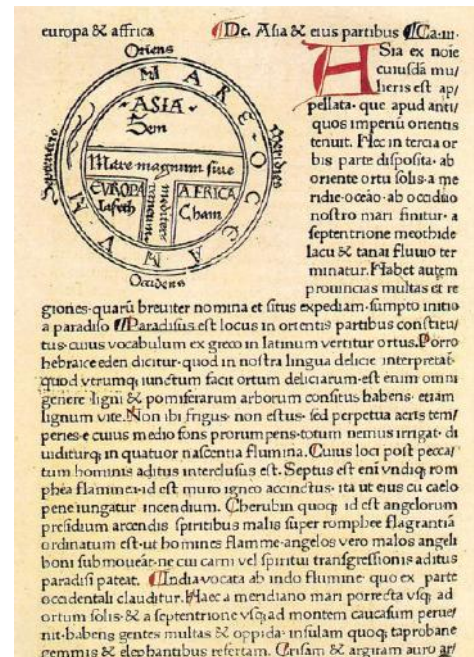 europa & affrica
De. Asia & eius partibus Ca·iii·
Oriens
Septentrio
Meridies
Occidens
MARE OCCEANVM
ASIA
Sem
Mare magnum siue
mediterraneum
EVROPA
Iafeth
AFRICA
Cham
Asia ex noīe
cuiusdā mu/
lieris est ap/
pellata· que apud anti/
quos imperiū orientis
tenuit. Hec in tercia or
bis parte disposita· ab
oriente ortu solis· a me
ridie· oceāo· ab occiduo
nostro mari finitur· a
septentrione meothide
lacu & tanai fluuio ter
minatur. Habet autem
prouincias multas et re
giones· quarū breuiter nomina et situs expediam· sumpto initio
a paradiso Paradisus est locus in orientis partibus constitu/
tus· cuius vocabulum ex greco in latinum vertitur ortus. Porro
hebraice eden dicitur· quod in nostra lingua delicie interpretat̄·
quod vtrumq; iunctum facit ortum deliciarum· est enim omni
genere ligni & pomiferarum arborum consitus habens· etiam
lignum vite. Non ibi frigus· non estus· sed perpetua aeris tem/
peries· e cuius medio fons prorumpens· totum nemus irrigat· di
uiditurq; in quatuor nascentia flumina. Cuius loci post peccat/
tum hominis aditus interclusus est. Septus est eni vndiq; rom
phea flammea· id est muro igneo accinctus· ita ut eius cu caelo
pene iungatur incendium. Cherubin quoq; id est angelorum
presidium arcendis spiritibus malis super romphee flagrantiā
ordinatum est· ut homines flamme· angelos vero malos angeli
boni submoueāt· ne cui carni vel spiritui transgressionis aditus
paradisi pateat. India vocata ab indo flumine· quo ex parte
occidentali clauditur. Haec a meridiano mari porrecta vsq; ad
ortum solis· & a septentrione vsq; ad montem caucasum perue/
nit· habens gentes multas & oppida· insulam quoq; taprobane
gemmis & elephantibus refertam. Crisam & argiram auro ar/